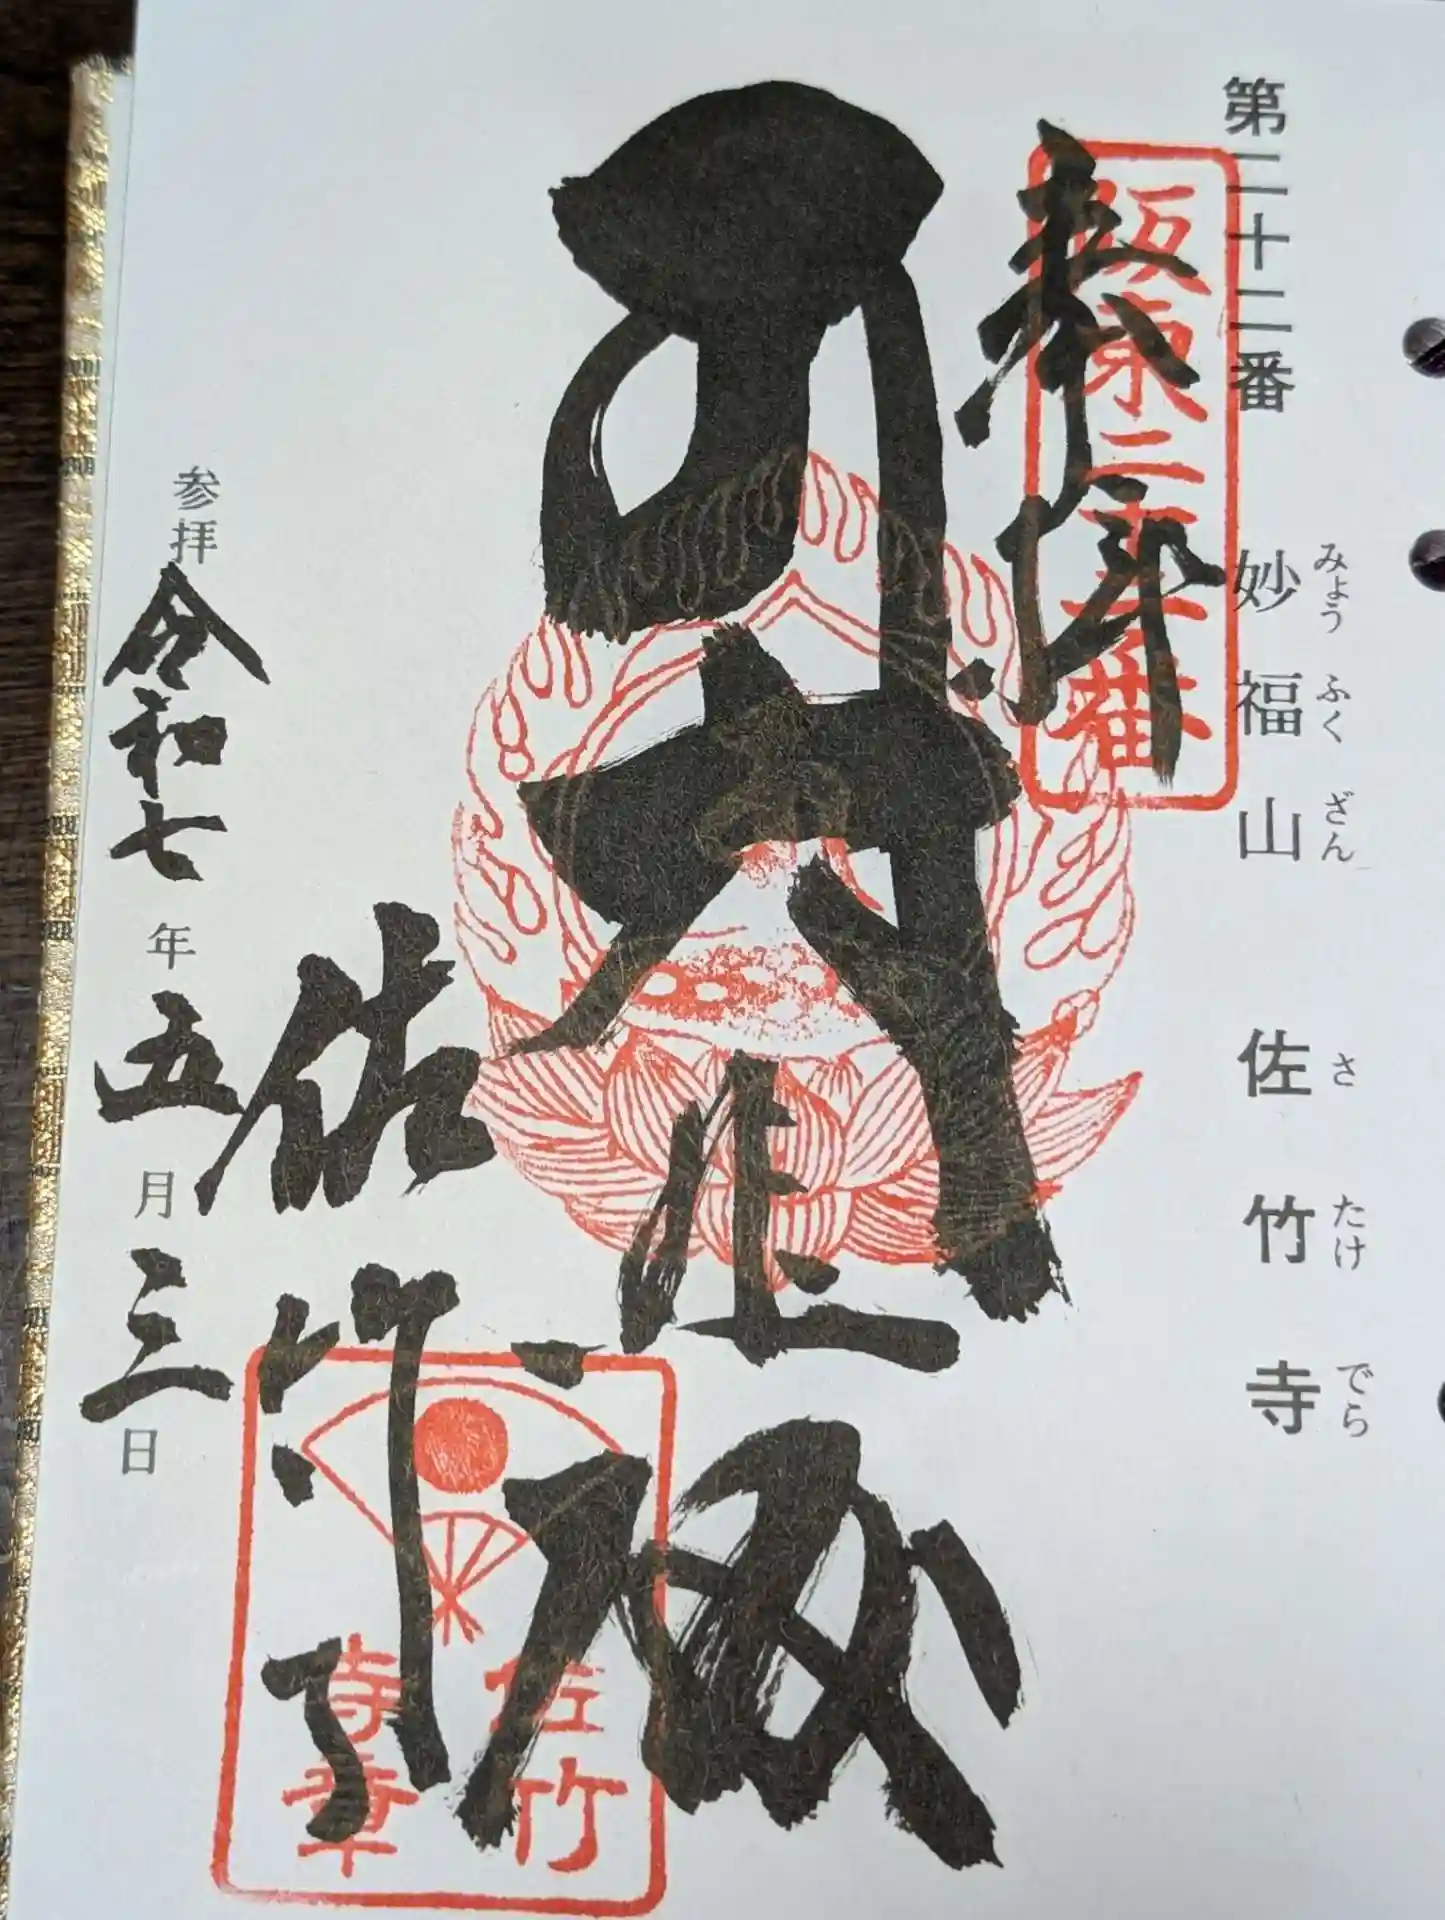 第二十二番
妙福山 佐竹寺
みょう ふく ざん さ たけ でら
坂東二十二番
奉拝
大座
佐竹寺
佐竹
寺章
参拝 令和七年五月三日